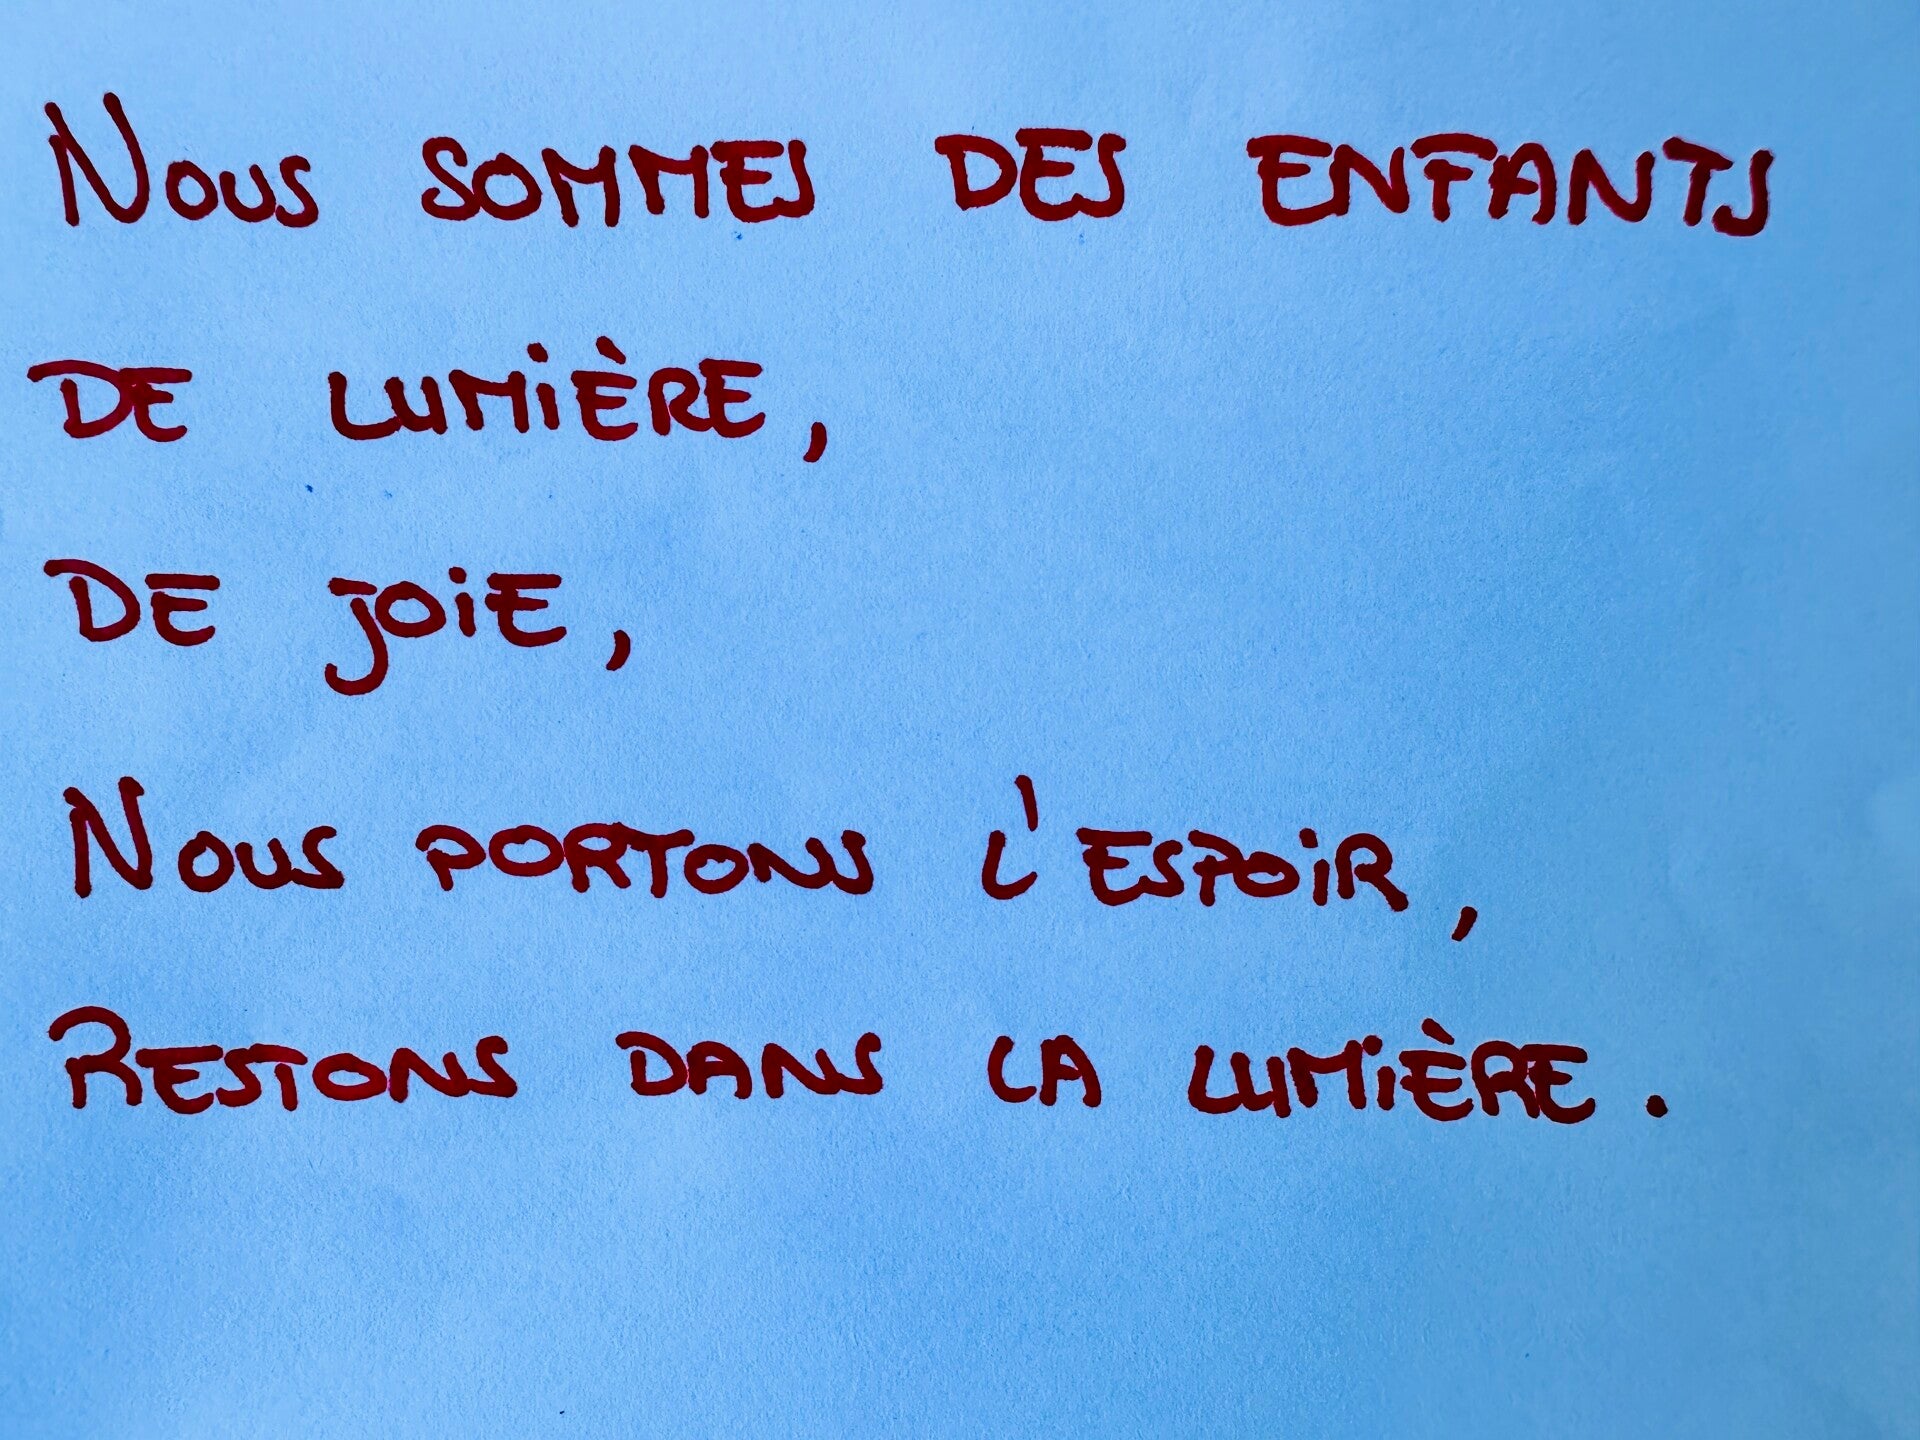 Nous sommes des enfants
de lumière,
de joie,
Nous portons l'espoir,
Restons dans la lumière.